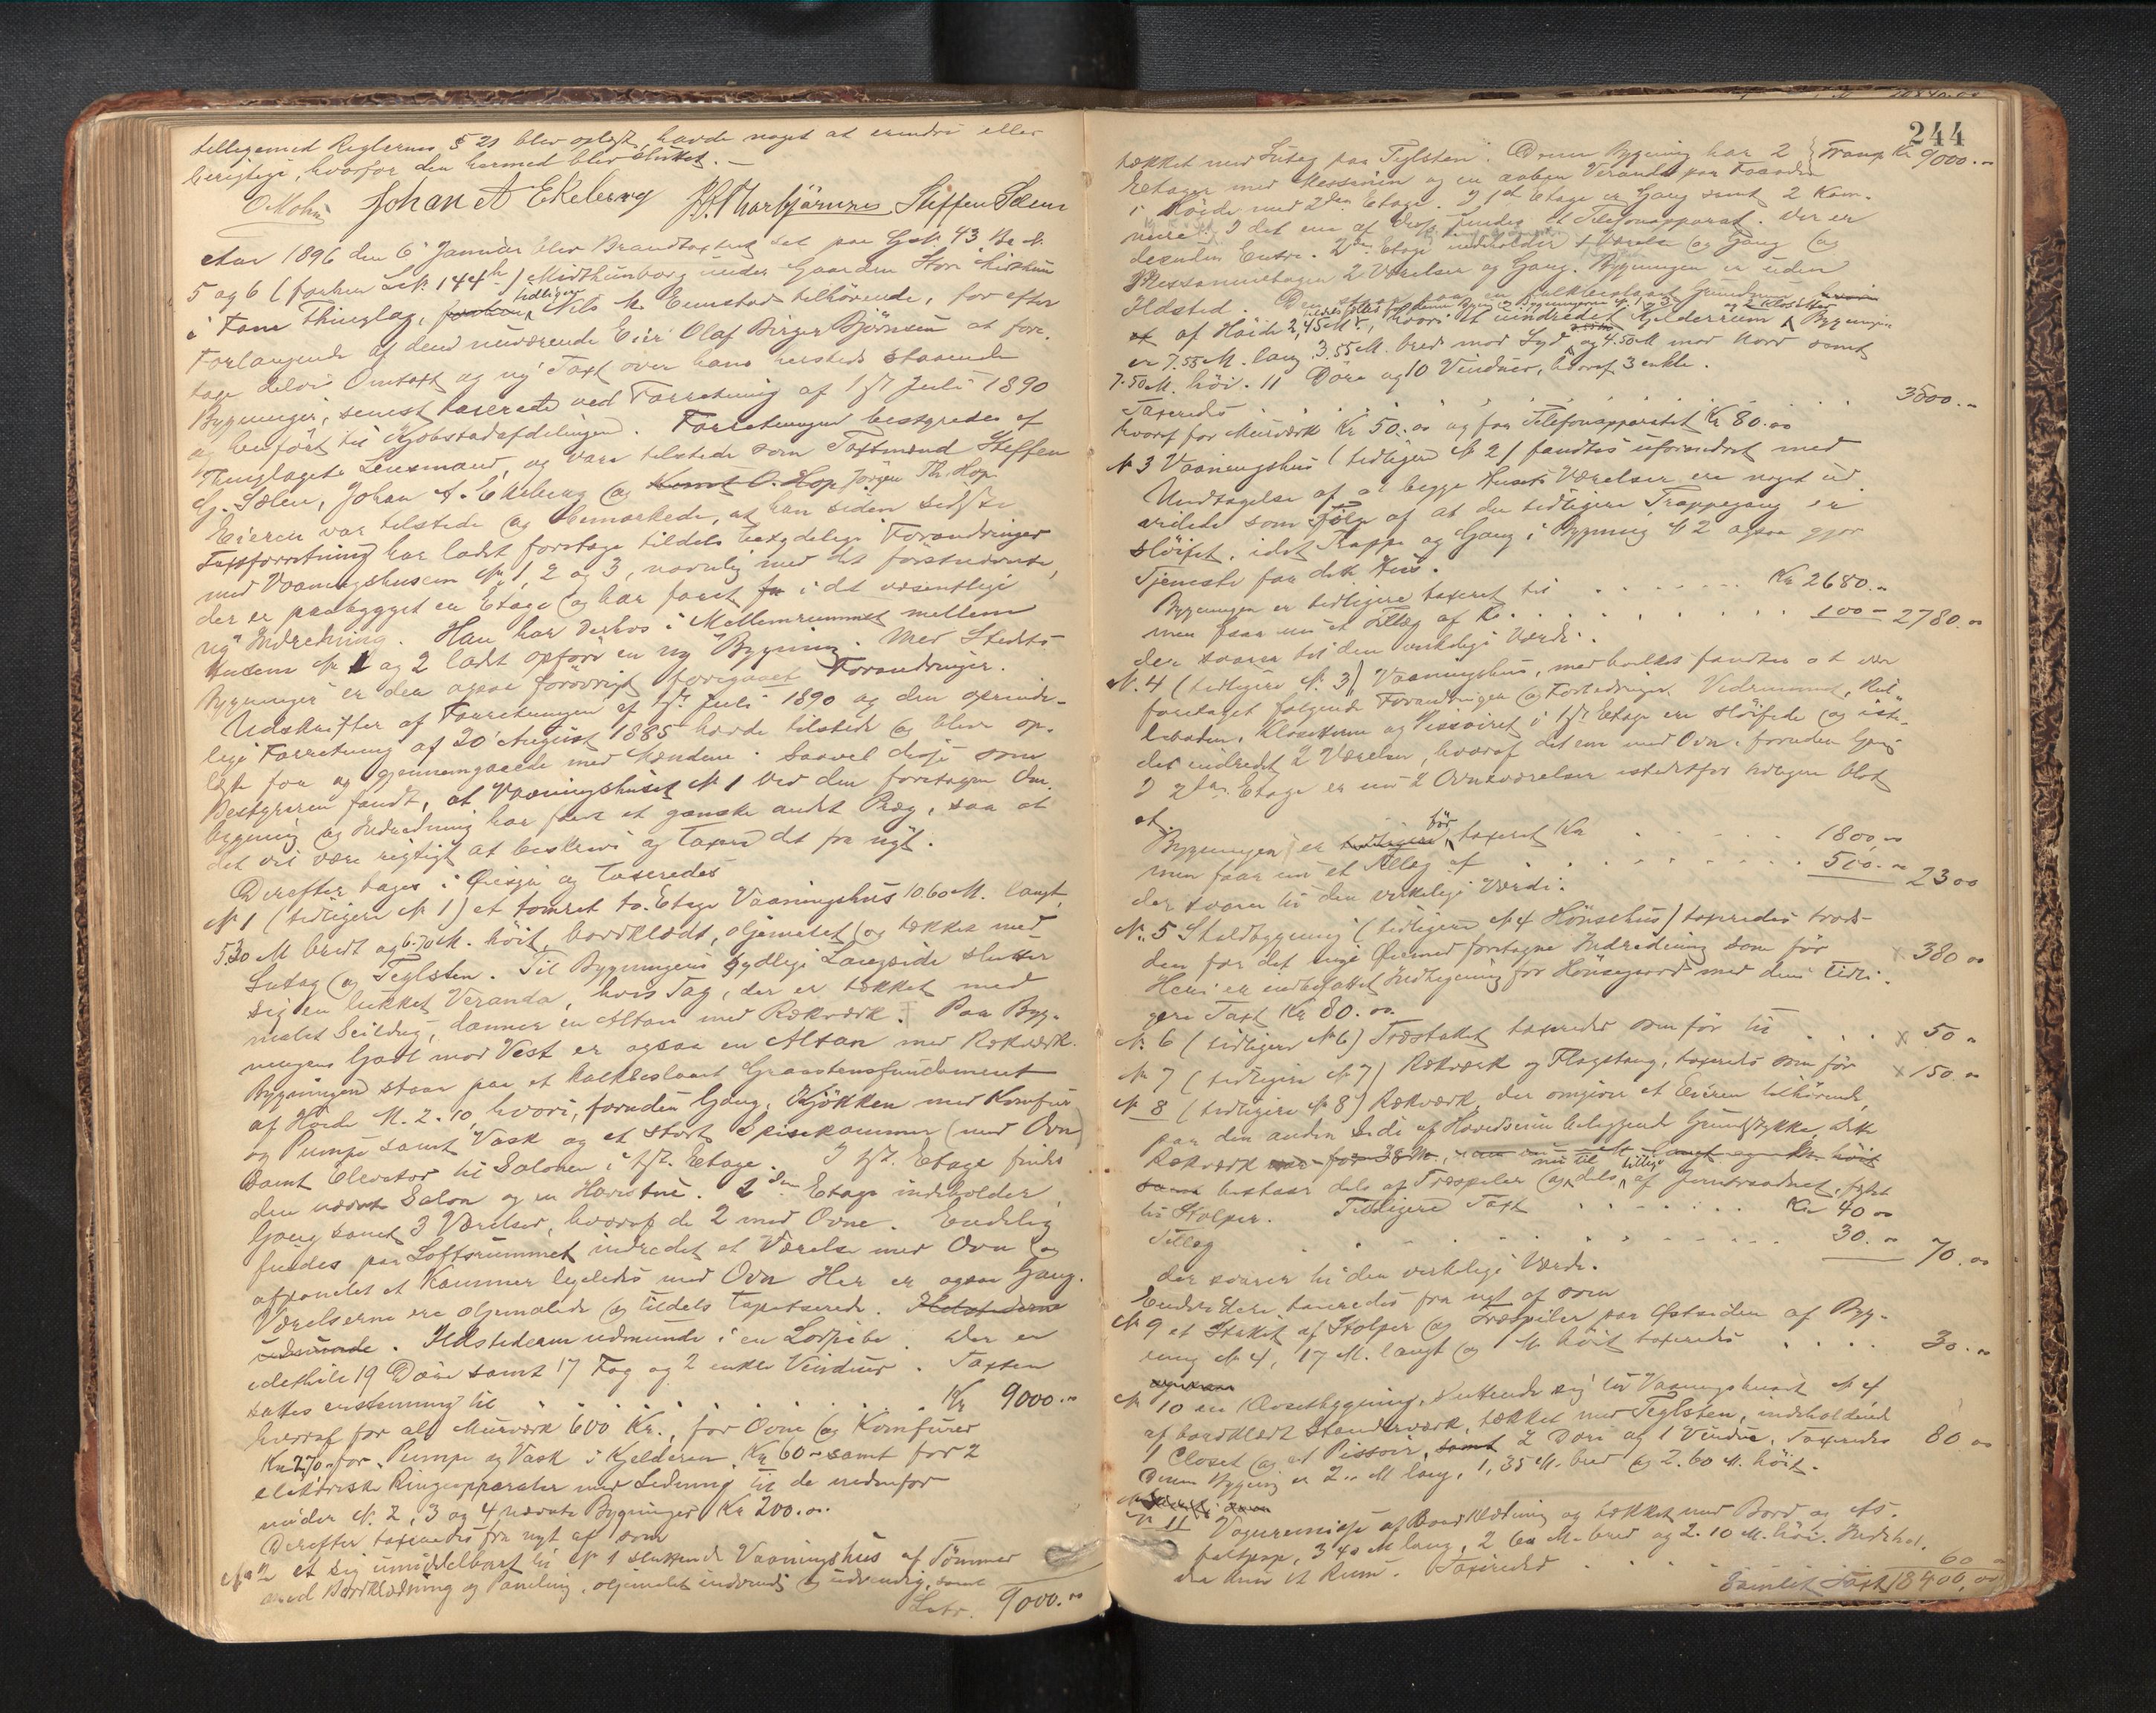 tillegemed Reglernes § 21 blev oplæst, havde noget at erindre eller
berigtige, hvorfor den hermed blev sluttet. —
O Mohn Johan A Ekeberg Steffen Sælen
Aar 1896 den 6 Januar blev Brandtaxtret sat paa Gr. 43 Br. N.
5 og 6 (forhen L. 144 h) Midthunborg under Gaarden Store Midthun
i Fane Thinglag, forhen tidligere Nils M. Eimstad tilhørende, for efter
Forlangende af den nuværende Eier Olaf Birger Bjørnsen at fore-
tage delvis Omtaxt og ny Taxt over hans hersteds staaende
Bygninger, senest taxerede ved Forretning af 1st Juli 1890
og henført til Kjøbstadafdelingen. Forretningen bestyredes af
Thinglagets Lensmand, og vare tilstede som Taxtmænd Steffen
G. Sælen, Johan A. Ekeberg og Knut O. Hop Jörgen Th. Hop.
Eieren var tilstede og bemærkede, at han siden sidste
Taxtforretning har ladet foretage tildels betydelige Forandringer
med Vaaningshusene № 1, 2 og 3, navnlig med det førstnævnte,
der er paabygget en Etage og har faaet i det væsentlige
ny Indredning. Han har derhos i Mellemrummet mellem
Husene № 1 og 2 ladet opføre en ny Bygning. Med Stedets
Bygninger er der ogsaa forøvrigt foregaaet Forandringer.
Udskrifter af Forretningen af 1st Juli 1890 og den oprinde-
lige Forretning af 20 August 1885 havde tilstede og blev op-
læst for og gjennemgaaede med Mændene. Saavel disse som
Bestyreren fandt, at Vaaningshuset № 1 ved den foretagne Om-
bygning og Indredning har faaet et ganske andet Præg, saa at
det vil være rigtigt at beskrive og taxere det fra nyt.
Derefter toges i Øiesyn og taxeredes
№ 1 (tidligere № 1) et tømret to-Etage Vaaningshus 10.60 M. langt,
5.30 M bredt og 6.70 M. høit, bordklædt, oljemalet og tækket med
Sutag og Teglsten. Til Bygningens sydlige Langside slutter
sig en lukket Veranda, hvis Tag, der er tækket med
malet Seildug, danner en Altan med Rækværk. Paa Byg-
ningens Gavl mod Vest er ogsaa en Altan med Rækværk.
Bygningen staar paa et kalkbeslaaet Graastensfundament
af Høide M. 2.10, hvori, foruden Gang, Kjøkken med Komfur
og Pumpe samt Vask og et stort Spisekammer (med Ovn)
samt Elevator til Salonen i 1st. Etage. I 1st. Etage findes
den nævnte Salon og en Havestue. 2den Etage indeholder
Gang samt 3 Værelser, hvoraf de 2 med Ovne. Endelig
findes paa Loftsrummet indredet et Værelse med Ovn og
afpanelet et Kammer ligeledes med Ovn Her er ogsaa Gang.
Værelserne ere oljemalede og tildels tapetserede. Ildstederne
udmunde. Ildstederne udmunde i en Lodpibe. Der er
idethele 19 Døre samt 17 Fag og 2 enkle Vinduer. Taxten
sattes enstemmig til . . . . . . Kr 9000.00
hvoraf for alt Murværk 600 Kr., for Ovne og Komfurer
Kr 270.00 for Pumpe og Vask i Kjelderen Kr 60.00 samt for 2
elektriske Ringeapparater med Ledning til de nedenfor
under N. 2, 3 og 4 nævnte Bygninger Kr 200.00.
Derefter taxeredes fra nyt af som
№ 2 et sig umiddelbart til № 1 sluttende Vaaningshus af Tømmer
med Bordklædning og Paneling, oljemalet indvendig og udvendig, samt
Latr. 9000.00
244
tækket med Sutag paa Teglsten. Denne Bygning har 2 Transp. Kr 9000.00
Etager med Messanin og en aaben Veranda paa Facaden
i Høide med 2den Etage. I 1st Etage er Gang samt 2 Kam-
mere. I det ene af disse findes et Telefonapparat. Der er
desuden Entre. 2den Etage indeholder 1 Værelse og Gang og
Messaninetagen 2 Værelser og Gang. Bygningen er uden
Ildsted. Den staar paa en kalkbeslaaet Grundmur
af Høide 2,45 M, hvori et uindredet Kjelderrum og 2 Klosetter Bygningen
er 7.55 M. lang 3.55 M. bred mod Syd og 4.50 M mod Nord samt
7.50 M. høi. 11 Døre og 10 Vinduer, hvoraf 3 enkle.
Taxeredes . . . . . . . . . 3500.00
hvoraf for Murværk Kr 50.00 og for Telefonapparatet Kr 80.00
№ 3 Vaaningshus (tidligere № 2) fandtes uforandret med
Undtagelse af at begge Husets Værelser ere noget ud-
videde som Følge af at den tidligere Trappegang er
sløifet, idet Trappe og Gang i Bygning № 2 ogsaa gjør
Tjeneste for dette Hus.
Bygningen er tidligere taxeret til . . . . Kr. 2680.00
men faar nu et Tillæg af Kr. . . . . . . 100 — 2780.00
der svarer til den virkelige Værdi.
№. 4 (tidligere №. 3) Vaaningshus, med hvilket fandtes at være
foretaget følgende Forandringer og Forbedringer. Vedrummet, Rul-
leboden, Klosettene og Pissoiret i 1st. Etage ere sløifede og iste-
det indredet 2 Værelser, hvoraf det ene med Ovn, foruden Gang
I 2den Etage er nu 2 Ovnsværelser istedetfor tidligere blot
et.
Bygningen er tidligere før taxeret Kr . . . . 1800.00
men faar nu et Tillæg af . . . . . . . 500.00 2300
der svarer til den virkelige Værdi.
№. 5 Staldbygning (tidligere № 4 Hønsehus) taxeredes trods
den for det nye Øiemed foretagne Indredning som før × 380.00
Heri er indbefattet Indhegning for Hønsegaard med dens tidli-
gere Taxt Kr 80.00
№ 6 (tidligere № 6) Træstaket taxeredes som før til . . . × 50.00
№ 7 (tidligere № 7) Rækværk og Flagstang, taxeredes som før × 150.00
№ 8 (tidligere № 8) Rækværk, der omgiver et Eieren tilhørende,
paa den anden Side af Hovedveien beliggende Grundstykke, dette
Rækværk
bestaar dels af Træspiler og nu til dels tillige af Jerntraadnet, fæstet
til Stolper. Tidligere Taxt . . . . . . Kr 40.00
Tillæg . . . . . . . . . . 30.00 70.00
der svarer til den virkelige Værdi.
Endelig taxeredes fra nyt af som
№ 9 et Stakit af Stolper og Træspiler paa Østsiden af Byg-
ning № 4, 17 M. langt og 1 M høit taxeredes . . . . 30.00
№ 10 en Closetbygning, sluttende sig til Vaaningshuset № 4
af bordklædt Standerværk, tækket med Teglsten, indeholdende
1 Closet og et Pissoir, samt 2 Døre og 1 Vindue, taxeredes 80.00
Denne Bygning er 2.00 M lang, 1,35 M. bred og 2.60 M. høit.
№ 11 Vognremise af Bordklædning og tækket med Bord og As-
faltpap, 3.40 M lang, 2.60 M. bred og 2.10 M. høi. Indehol-
der kun et Rum. Taxeredes . . . . . . 60.00
Samlet Taxt 18400,00